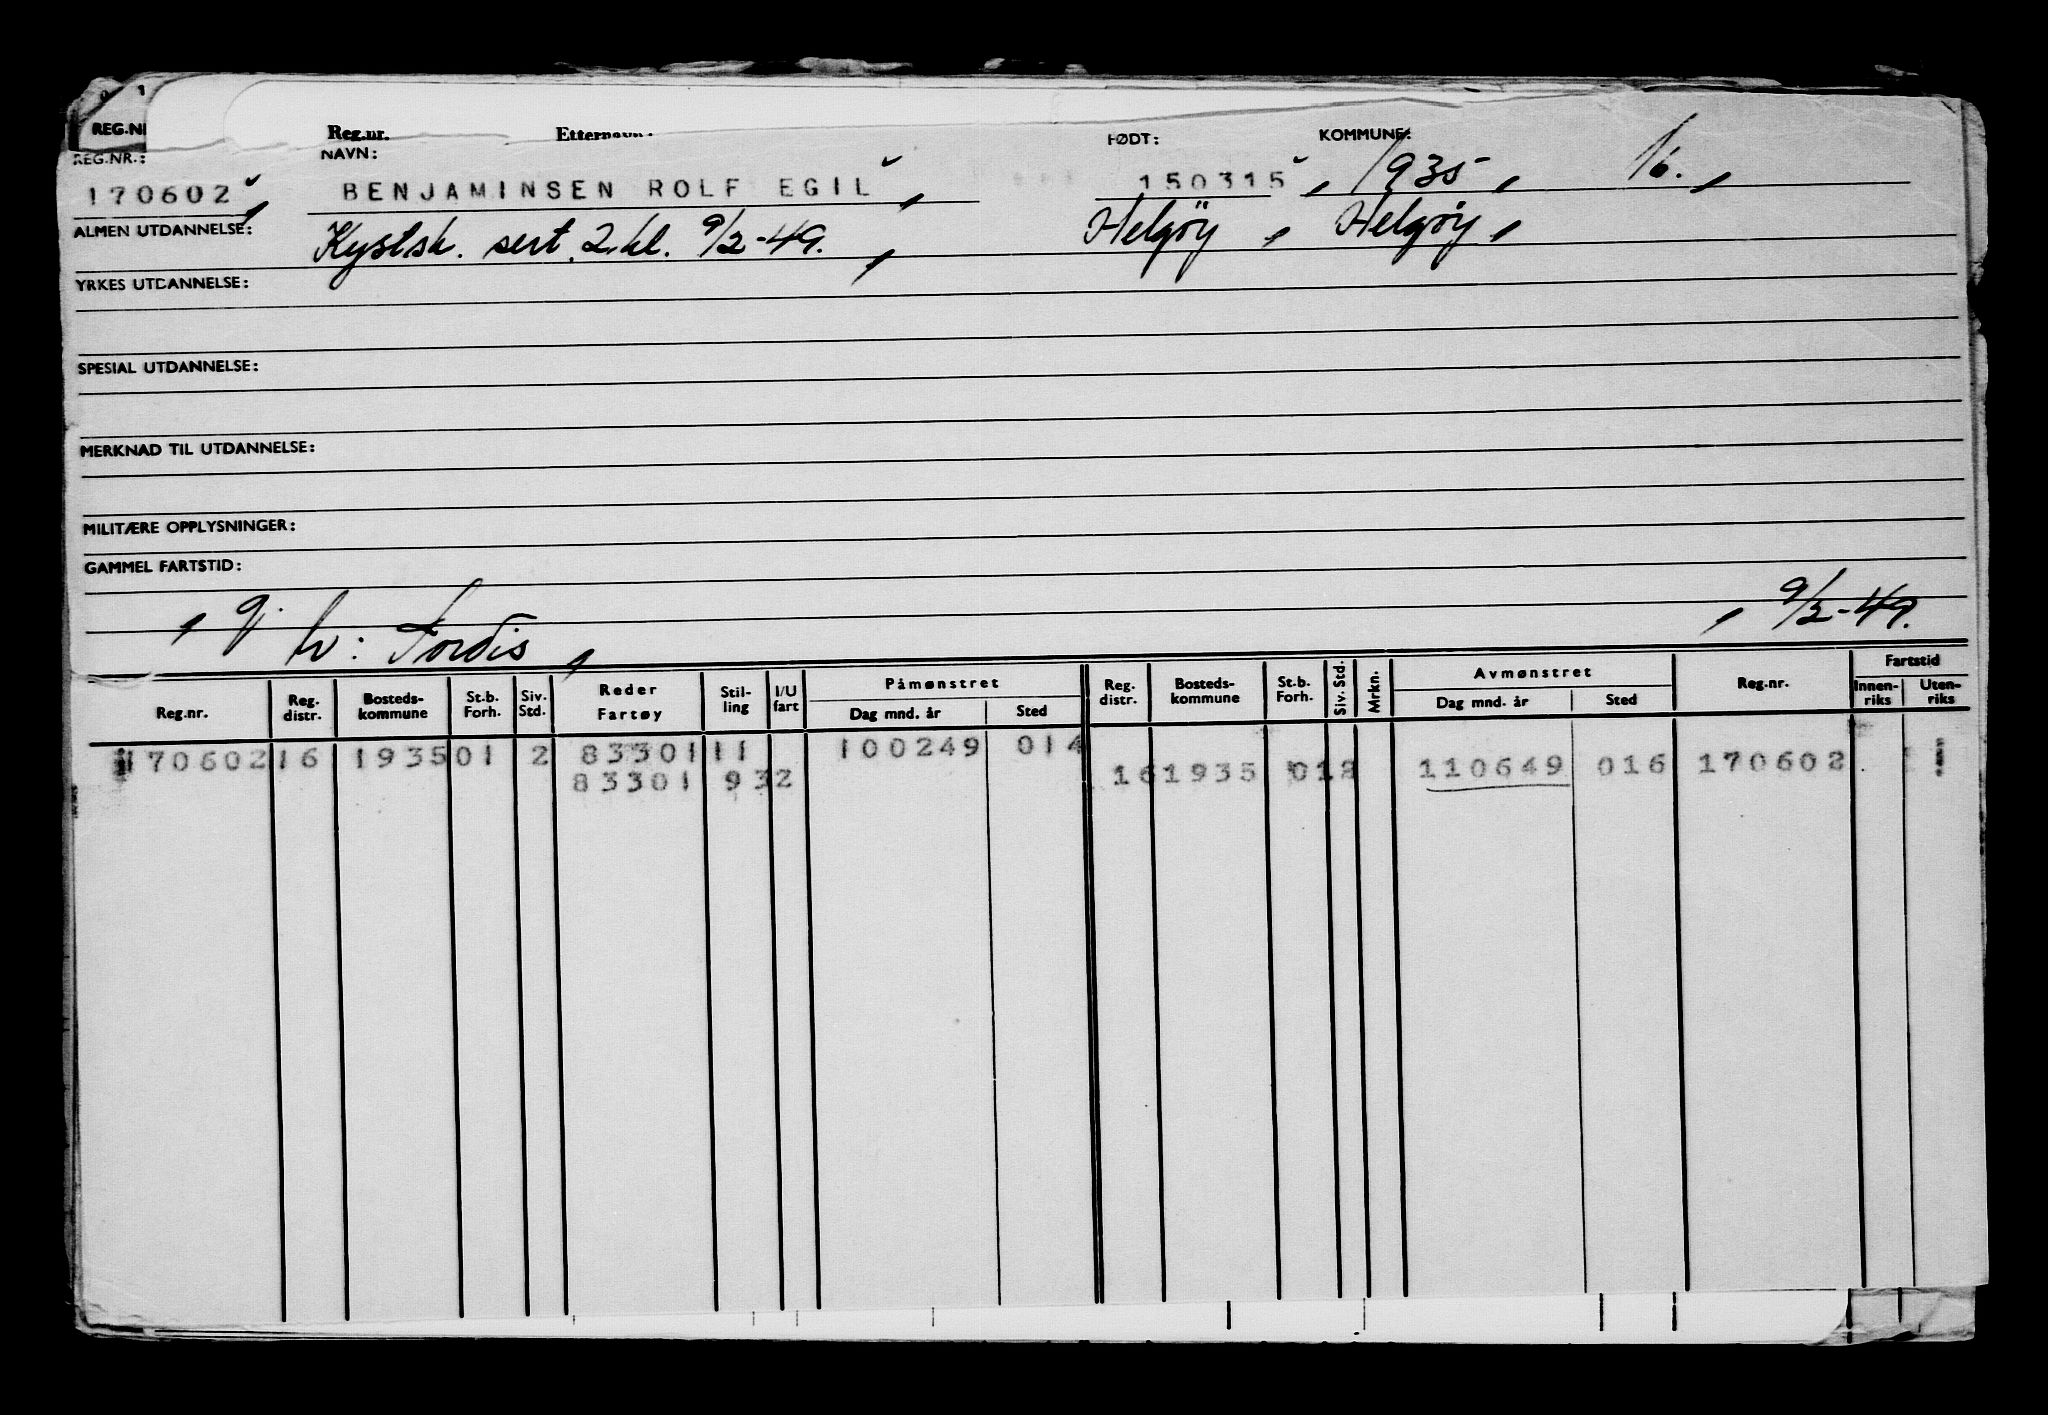 REG.N
Reg.nr. Etternavn: FØDT: KOMMUNE:
REG.NR.: NAVN:
170602, BENJAMINSEN ROLF EGIL, 150315, 1935, 16.,
ALMEN UTDANNELSE: Kystsk. sert. 2 kl. 9/2-49., Helgöy, Helgöy,
YRKES UTDANNELSE:
SPESIAL UTDANNELSE:
MERKNAD TIL UTDANNELSE:
MILITÆRE OPPLYSNINGER:
GAMMEL FARTSTID:
, gj. hv: Tordis, , 9/2-49.
Reg.nr. Reg. distr. Bosteds-kommune St.b. Forh. Siv. Std. Reder Fartøy Stil-ling I/U fart Påmønstret Dag mnd. år Sted Reg. distr. Bosteds-kommune St.b. Forh. Siv. Std. Mrkn. Avmønstret Dag mnd. år Sted Reg.nr. Fartstid Innen-riks Uten-riks
170602 16 1935 01 2 83301 11 100249 014
83301 932 16 1935 012 110649 016 170602